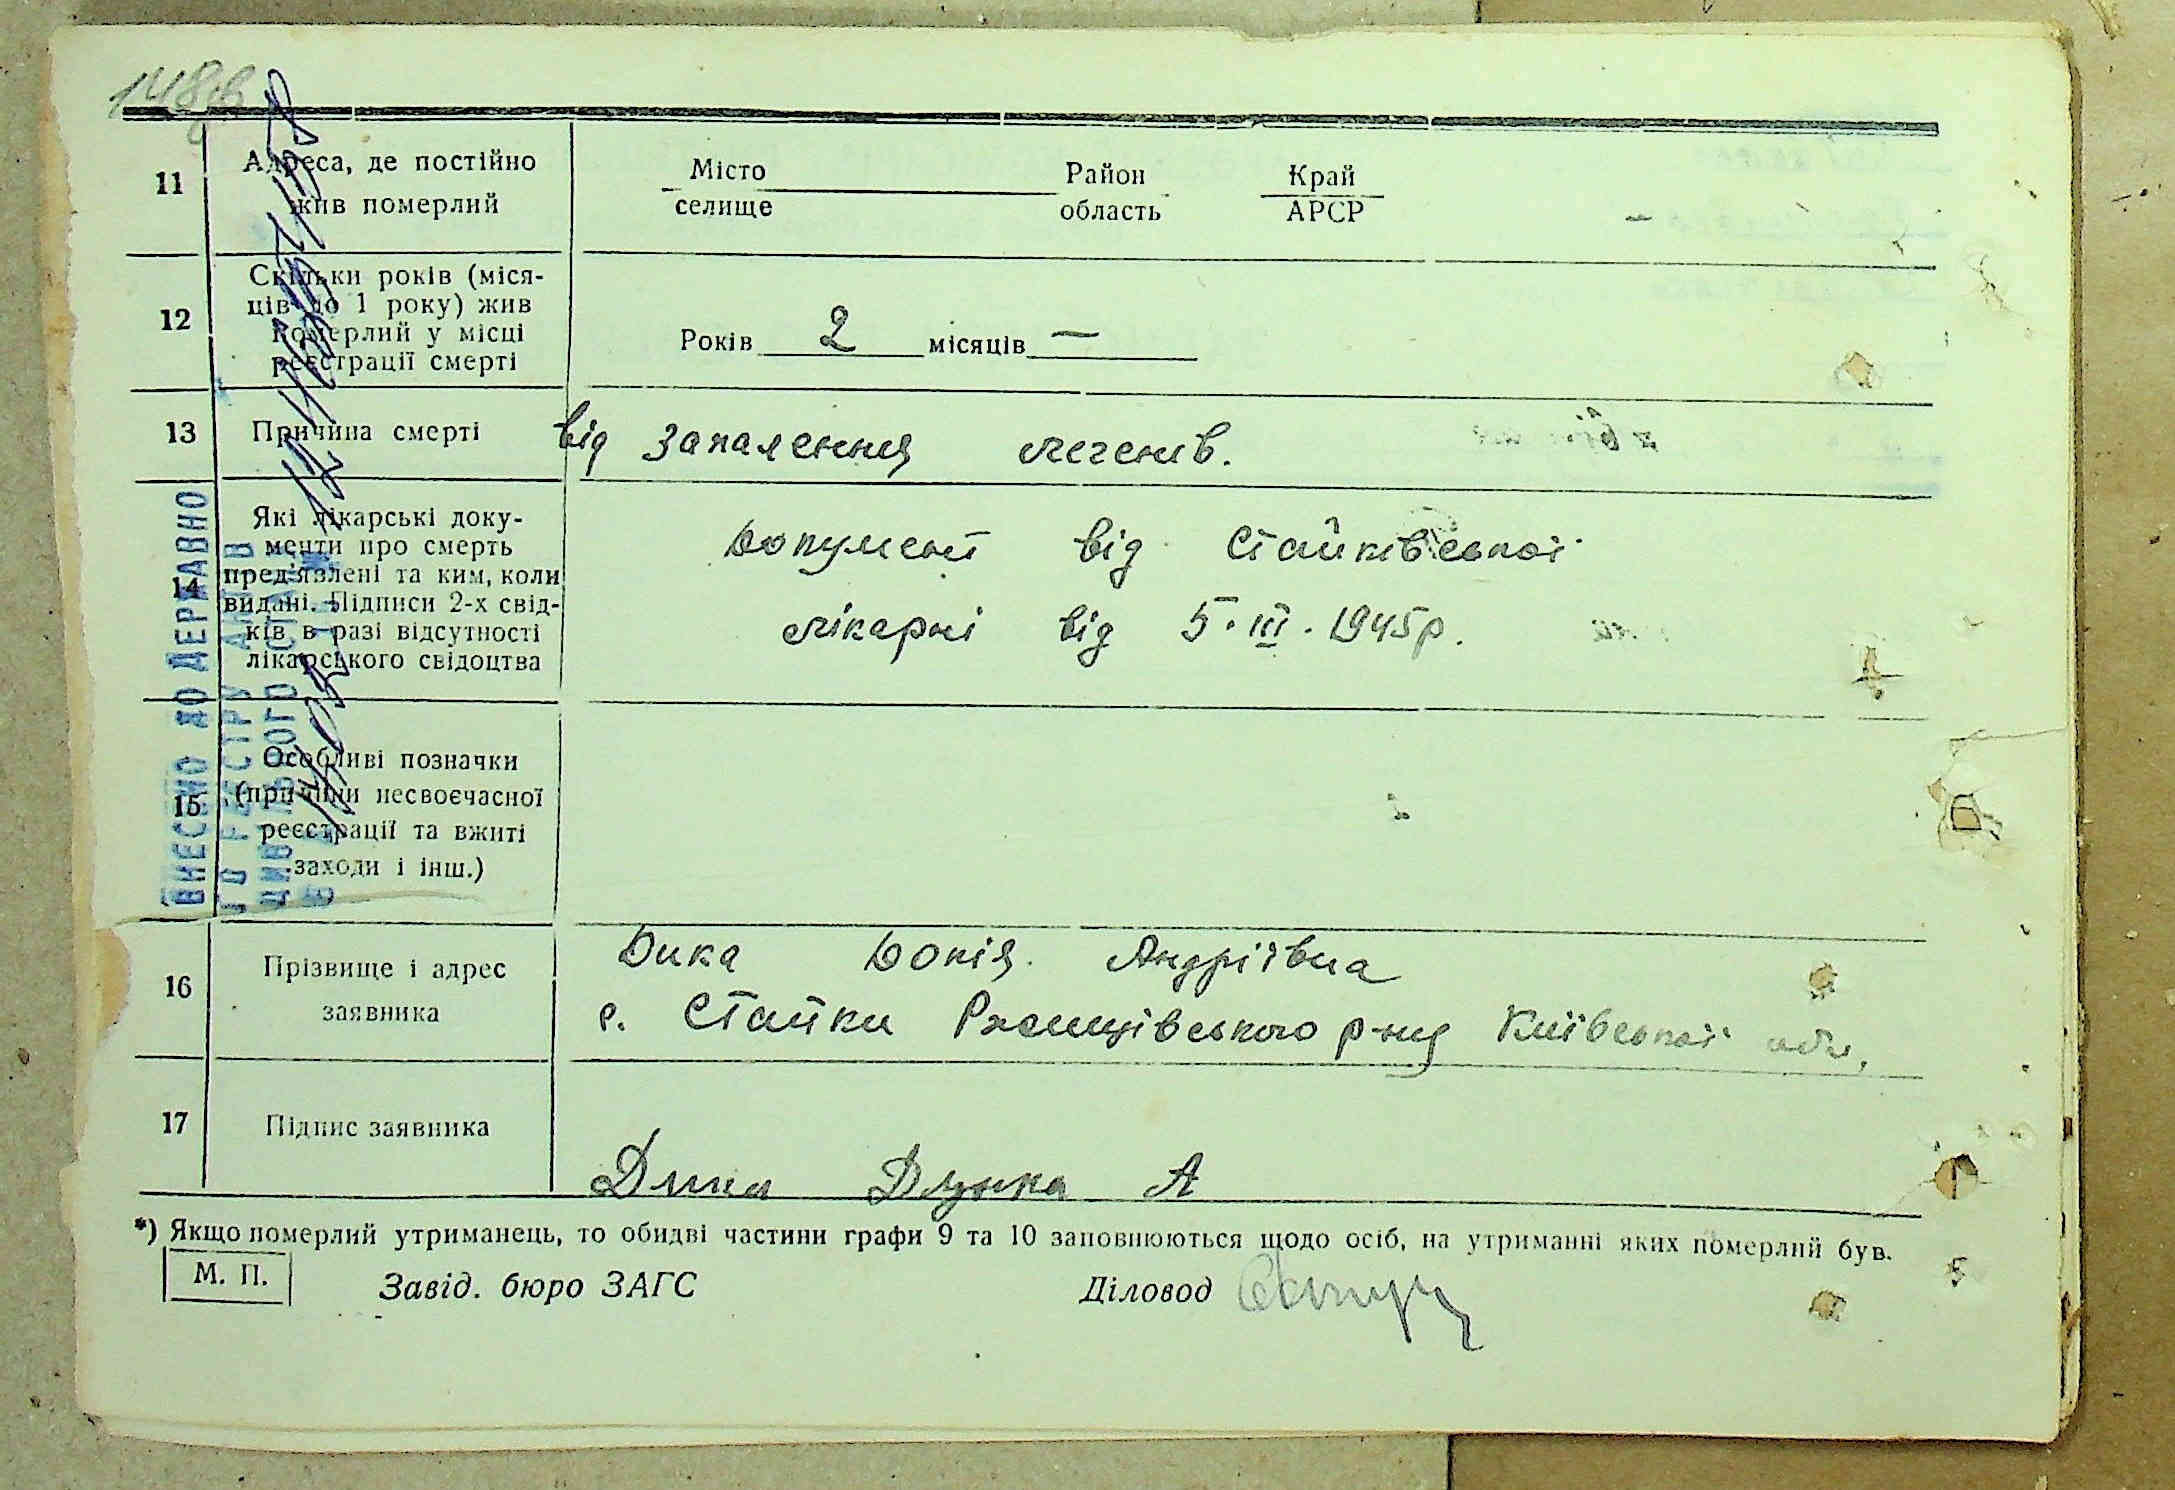 148зв
11
Адреса, де постійно
жив померлий
Місто
селище
Район
область
Край
АРСР
–
12
Скільки років (міся-
ців до 1 року) жив
померлий у місці
реєстрації смерті
Років 2 місяців —
13
Причина смерті
від запалення легенів.
14
Які лікарські доку-
менти про смерть
пред'явлені та ким, коли
видані. Підписи 2-х свід-
ків в разі відсутності
лікарського свідоцтва
Документ від Стайківської
лікарні від 5.III.1945р.
15
Особливі позначки
(причини несвоєчасної
реєстрації та вжиті
заходи і інш.)
16
Прізвище і адрес
заявника
Дика Докія Андріївна
с. Стайки Ржищівського р-ну Київської обл.
17
Підпис заявника
Дика А
*) Якщо померлий утриманець, то обидві частини графи 9 та 10 заповнюються щодо осіб, на утриманні яких померлий був.
М. П.
Завід. бюро ЗАГС
Діловод
ВНЕСЕНО ДО ДЕРЖАВНО
ГО РЕЄСТРУ АКТІВ
ЦИВІЛЬНОГО СТАНУ